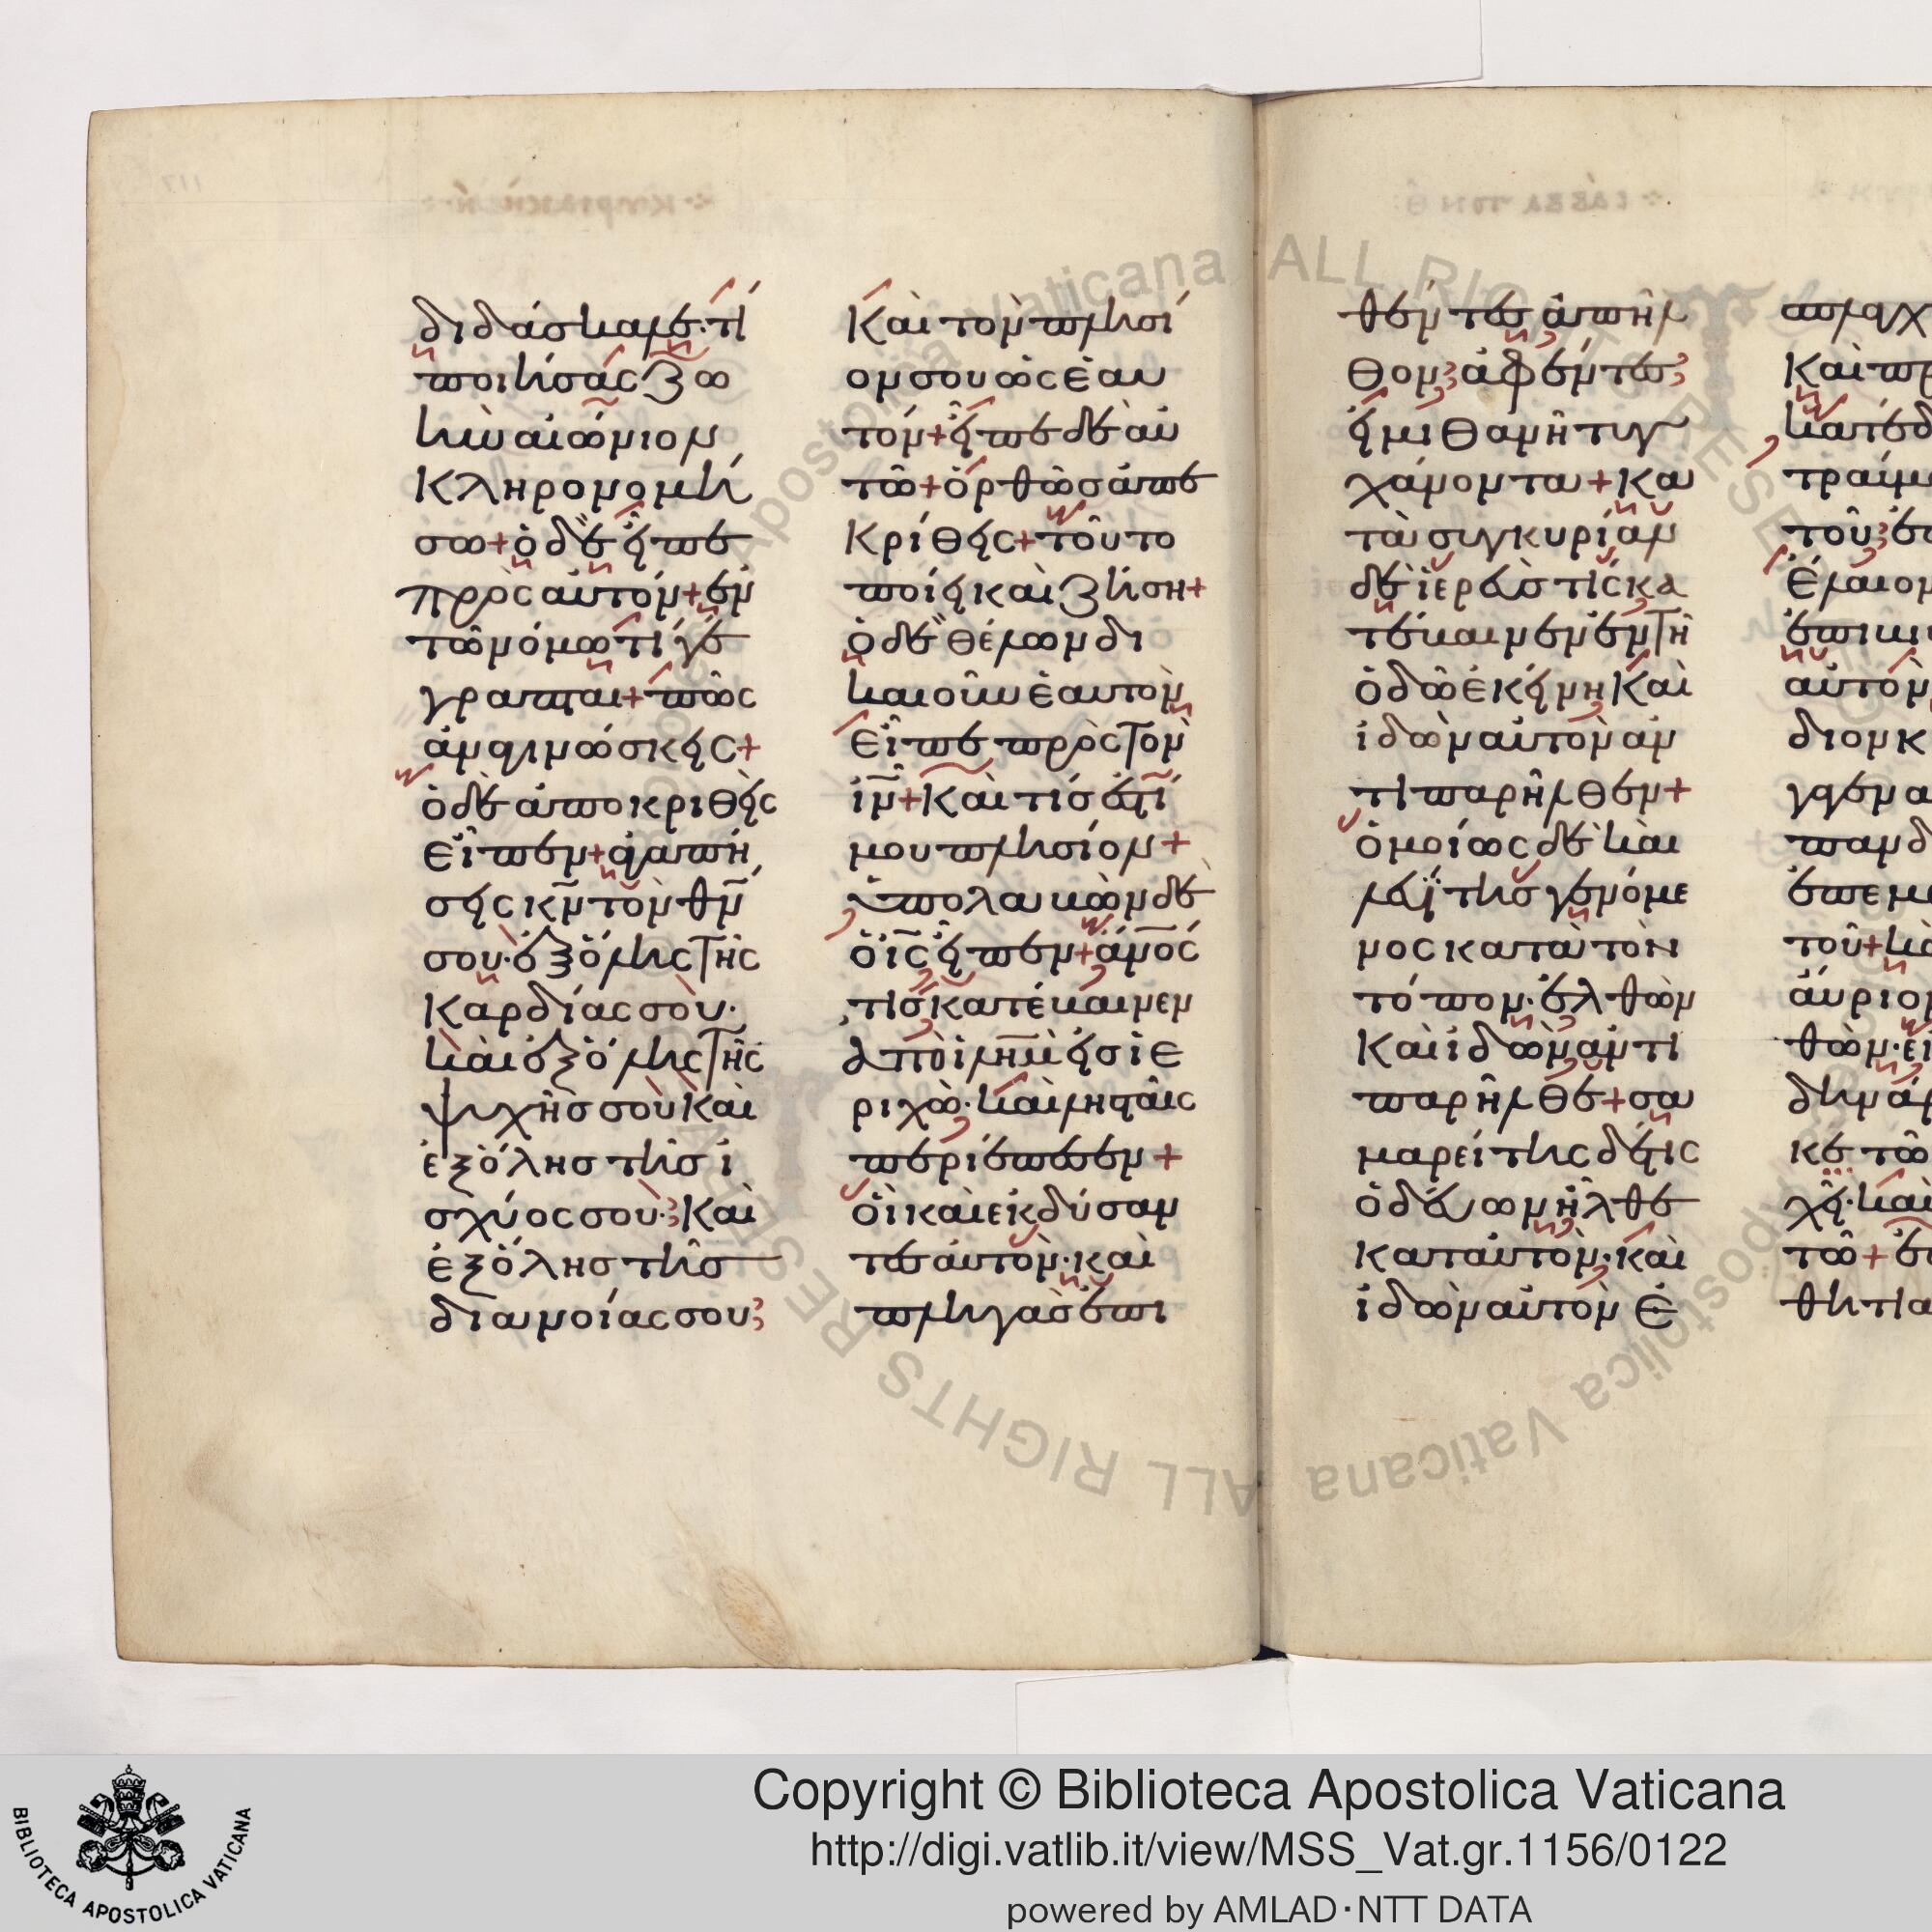 διδάσκαλε· τί
ποιήσας ζω
ὴν αἰώνιον
κληρονομή
σω + ὁ δὲ εἶπε
πρὸς αὐτόν + ἐν
τῶ νόμω τί γέ
γραπται + πῶς
ἀναγινώσκεις +
ὁ δὲ ἀποκριθεὶς
εἶπεν + ἀγαπή
σεις κν̄ τὸν θν̄
σου· ἐξ ὅλης τῆς
καρδίας σου·
καὶ ἐξ ὅλης τῆς
ψυχῆς σου καὶ
ἐξ ὅλης τῆς ἰ
σχύος σου· καὶ
ἐξ ὅλης τῆς
διανοίας σου
καὶ τὸν πλησί
ον σου ὡς ἑαυ
τόν + εἶπε δὲ αὐ
τῶ + ὀρθῶς ἀπε
κρίθεις + τοῦτο
ποίει καὶ ζήση +
ὁ δὲ θέλων δι
καιοῦν ἑαυτὸν
εἶπε πρὸς τὸν
ιν̄ + καὶ τίς ἐστί
μου πλησίον +
ὑπολαβὼν δὲ
ὁ ις̄ εἶπεν + ἀνος̄
τις κατέβαινεν
ἀπὸ ιλημ̄ εἰς ἱε
ριχώ· καὶ λησταῖς
περιέπεσεν +
οἳ καὶ ἐκδύσαν
τες αὐτὸν· καὶ
πληγὰς ἐπι
θέντες ἀπῆλ
θον ἀφέντες
ἡμιθανῆ τυγ
χάνοντα + κα
τὰ συγκυρίαν
δὲ ἱερεύς τις κα
τέβαινεν ἐν τῆ
ὁδῶ ἐκείνη καὶ
ἰδὼν αὐτὸν ἀν
τιπαρῆλθεν +
ὁμοίως δὲ καὶ
λευΐτης γενόμε
νος κατὰ τὸν
τόπον· ἐλθὼν
καὶ ἰδὼν ἀντι
παρῆλθε + σα
μαρείτης δέ τις
ὁδεύων ἦλθε
κατ αὐτὸν· καὶ
ἰδὼν αὐτὸν ἐ
Copyright © Biblioteca Apostolica Vaticana
http://digi.vatlib.it/view/MSS_Vat.gr.1156/0122
powered by AMLAD·NTT DATA
BIBLIOTECA APOSTOLICA VATICANA